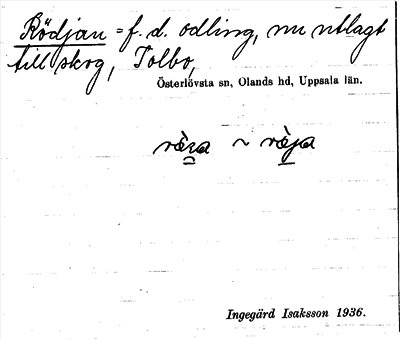 Rödjan = f. d. odling, nu utlagt
till skog, Tolbo,
Österlövsta sn, Olands hd, Uppsala län.
ràra ~ ràja
Ingegärd Isaksson 1936.